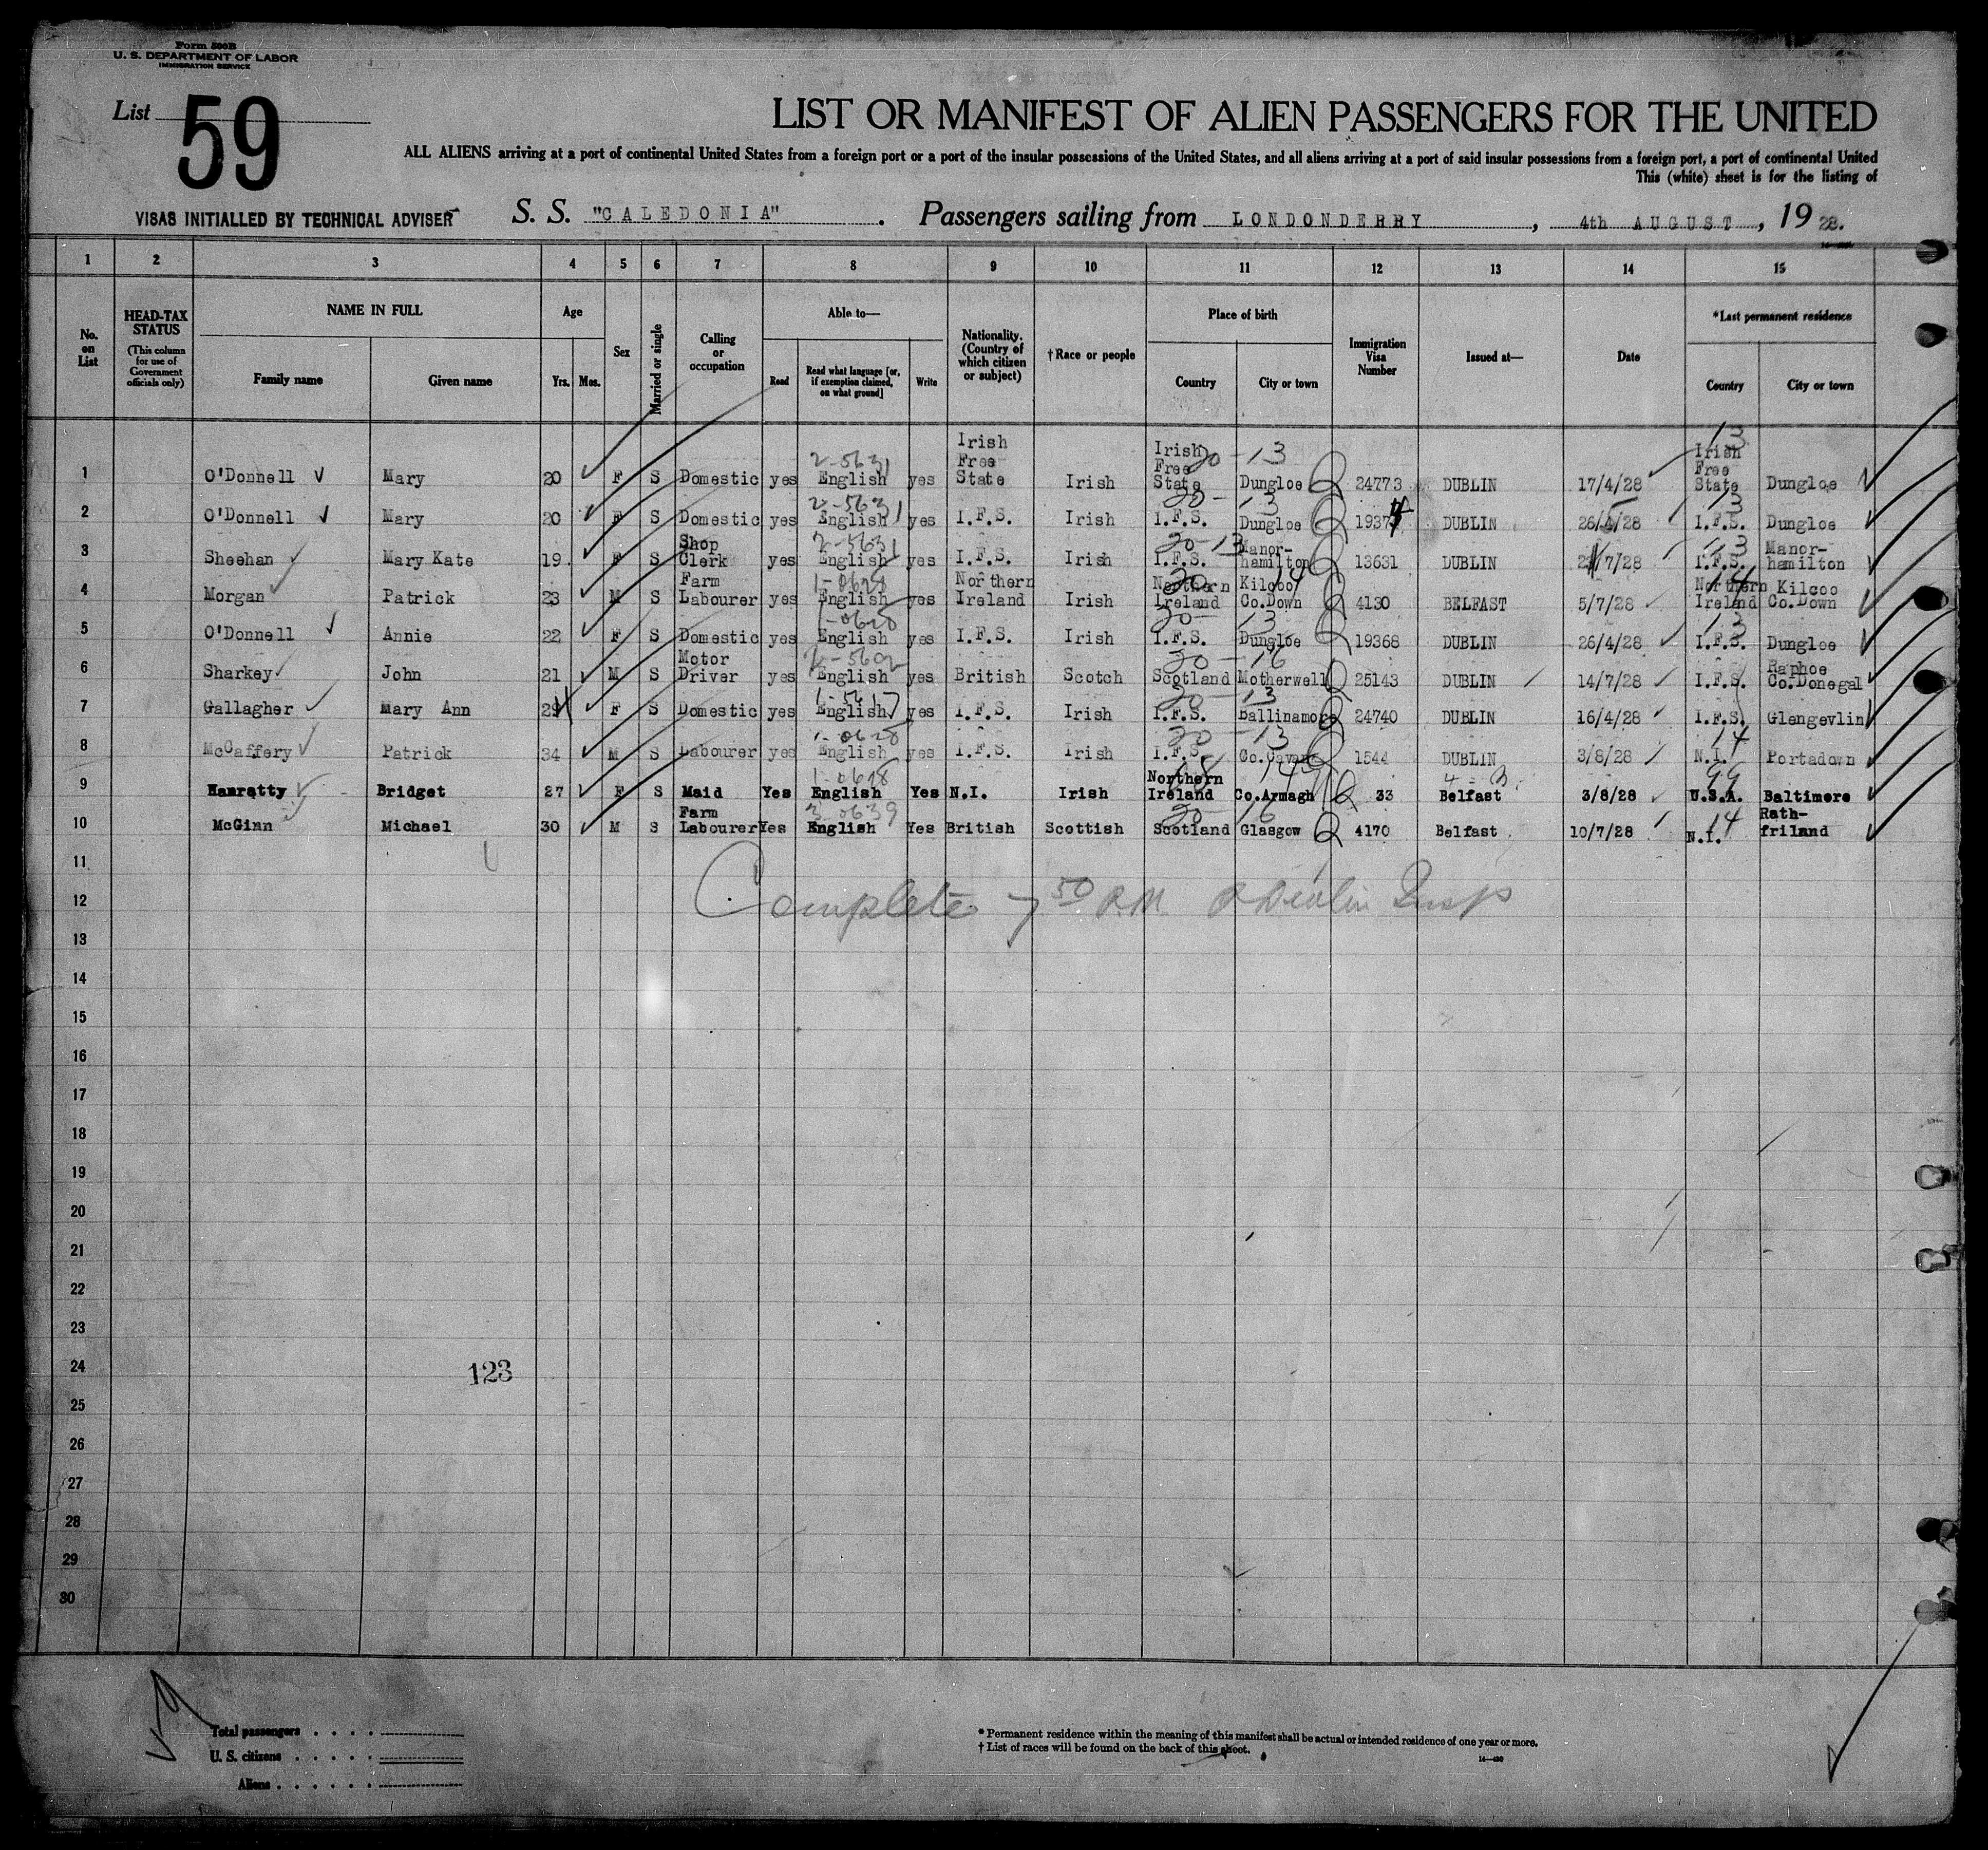 Form 500B
U. S. DEPARTMENT OF LABOR
IMMIGRATION SERVICE
List 59
LIST OR MANIFEST OF ALIEN PASSENGERS FOR THE UNITED
ALL ALIENS arriving at a port of continental United States from a foreign port or a port of the insular possessions of the United States, and all aliens arriving at a port of said insular possessions from a foreign port, a port of continental United
This (white) sheet is for the listing of
VISAS INITIALLED BY TECHNICAL ADVISER
S. S. "CALEDONIA". Passengers sailing from LONDONDERRY, 4th AUGUST, 1928.
1 2 3 4 5 6 7 8 9 10 11 12 13 14 15
No. on List
HEAD-TAX STATUS
(This column for use of Government officials only)
NAME IN FULL
Family name
Given name
Age
Yrs.
Mos.
Sex
Married or single
Calling or occupation
Able to—
Read
Read what language [or, if exemption claimed, on what ground]
Write
Nationality. (Country of which citizen or subject)
†Race or people
Place of birth
Country
City or town
Immigration Visa Number
Issued at—
Date
*Last permanent residence
Country
City or town
1 O'Donnell Mary 20 F S Domestic yes 2-5631 English yes Irish Free State Irish Irish Free State 20-13 Dungloe 24773 DUBLIN 17/4/28 13 Irish Free State Dungloe
2 O'Donnell Mary 20 F S Domestic yes 2-5631 English yes I.F.S. Irish I.F.S. 20-13 Dungloe 19374 DUBLIN 26/4/28 13 I.F.S. Dungloe
3 Sheehan Mary Kate 19 F S Shop Clerk yes 2-5631 English yes I.F.S. Irish I.F.S. 20-13 Manor-hamilton 13631 DUBLIN /7/28 13 I.F.S. Manor-hamilton
4 Morgan Patrick 23 M S Farm Labourer yes 1-0628 English yes Northern Ireland Irish Northern Ireland 20 14 Kilcoo Co.Down 4130 BELFAST 5/7/28 14 Northern Ireland Kilcoo Co.Down
5 O'Donnell Annie 22 F S Domestic yes 1-0628 English yes I.F.S. Irish I.F.S. 20-13 Dungloe 19368 DUBLIN 26/4/28 13 I.F.S. Dungloe
6 Sharkey John 21 M S Motor Driver yes 2-5602 English yes British Scotch Scotland 20-16 Motherwell 25143 DUBLIN 14/7/28 I.F.S. Raphoe Co.Donegal
7 Gallagher Mary Ann 29 F S Domestic yes 1-5617 English yes I.F.S. Irish I.F.S. 20-13 Ballinamore 24740 DUBLIN 16/4/28 I.F.S. Glengevlin
8 McCaffery Patrick 34 M S Labourer yes 1-0628 English yes I.F.S. Irish I.F.S. 20-13 Co.Cavan 1544 DUBLIN 3/8/28 14 N.I. Portadown
9 Hanratty Bridget 27 F S Maid Yes 1-0618 English Yes N.I. Irish Northern Ireland 14 Co.Armagh 33 4-3 Belfast 3/8/28 99 U.S.A. Baltimore
10 McGinn Michael 30 M S Farm Labourer Yes 3-0639 English Yes British Scottish Scotland 20-16 Glasgow 4170 Belfast 10/7/28 14 N.I. Rath-friland
11
12 Complete 7 50 P.M. Insp
13
14
15
16
17
18
19
20
21
22
23
24 123
25
26
27
28
29
30
Total passengers
U. S. citizens
Aliens
* Permanent residence within the meaning of this manifest shall be actual or intended residence of one year or more.
† List of races will be found on the back of this sheet.